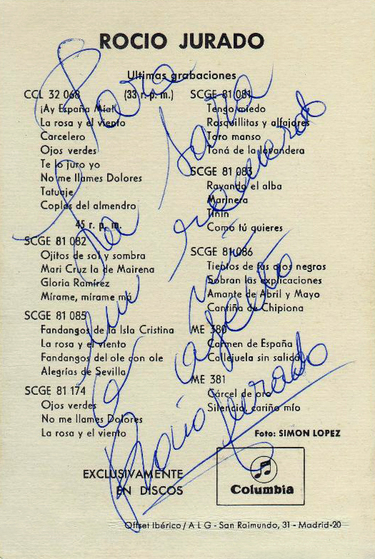 ROCIO JURADO
Ultimas grabaciones
CCL 32 068 (33 r. p. m.)
¡Ay España Mía!
La rosa y el viento
Carcelero
Ojos verdes
Te lo juro yo
No me llames Dolores
Tatuaje
Coplas del almendro
45 r. p. m.
SCGE 81 082
Ojitos de sol y sombra
Mari Cruz la de Mairena
Gloria Ramírez
Mírame, mírame más
SCGE 81 085
Fandangos de la Isla Cristina
La rosa y el viento
Fandangos del ole con ole
Alegrías de Sevilla
SCGE 81 174
Ojos verdes
No me llames Dolores
La rosa y el viento
SCGE 81 081
Tengo miedo
Rasquillitas y alfajores
Toro manso
Toná de la lavandera
SCGE 81 083
Rayando el alba
Marinera
Tinin
Como tú quieres
SCGE 81 086
Tientos de tus ojos negros
Sobran las explicaciones
Amante de Abril y Mayo
Cantiña de Chipiona
ME 380
Carmen de España
Callejuela sin salida
ME 381
Cárcel de oro
Silencio, cariño mío
Foto: SIMON LOPEZ
EXCLUSIVAMENTE
EN DISCOS
Columbia
Offset Ibérico / A L G - San Raimundo, 31 - Madrid-20
Para
recuerdo
afecto
Rocio Jurado